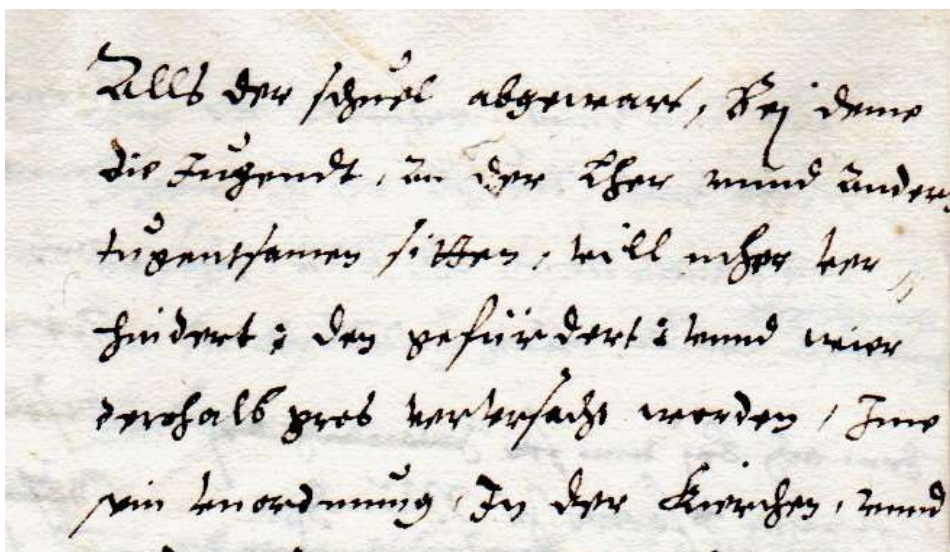 Alls der schuel abgewart, Bej deme
die Jugendt, in der Lher vnnd ander
tugentsamen sitten, vill meher ver„
hindert: den gefürdert: vnnd wier
derohalb verursacht worden, Ime
sein vnordnung, In der Kierchen, vnnd